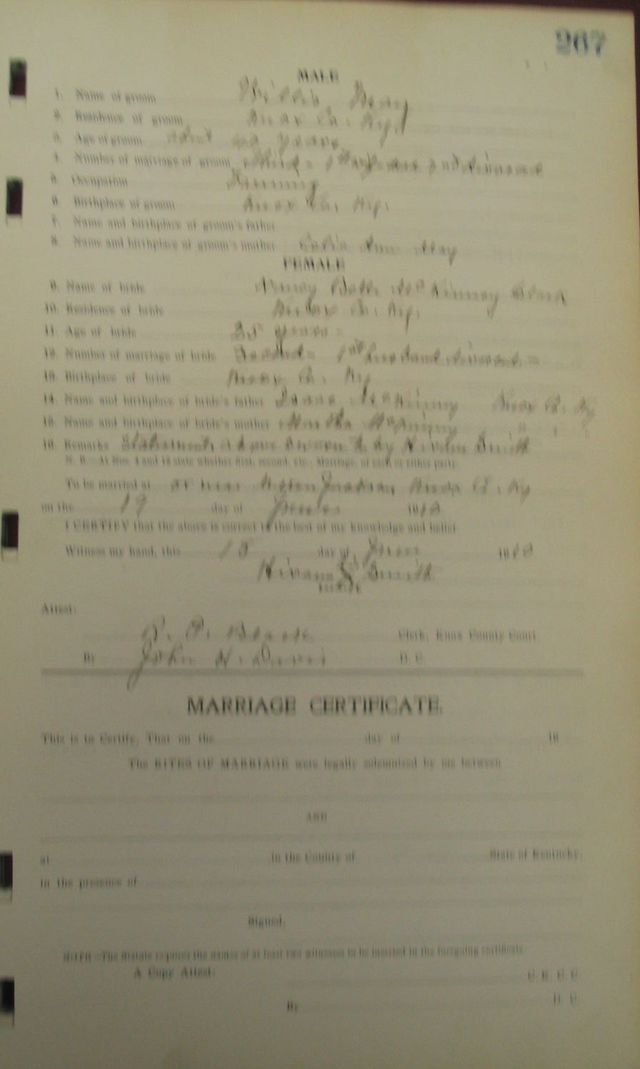 267
MALE
1. Name of groom Willis Gray
2. Residence of groom Knox Co. Ky.
3. Age of groom years
4. Number of marriage of groom Third = 1st 2nd divorced
5. Occupation Farming
6. Birthplace of groom Knox Co. Ky.
7. Name and birthplace of groom's father
8. Name and birthplace of groom's mother Ann Gray
FEMALE
9. Name of bride Nancy Belle McKinney
10. Residence of bride Knox Co. Ky.
11. Age of bride 25 years =
12. Number of marriage of bride Second = 1st husband divorced =
13. Birthplace of bride Knox Co. Ky
14. Name and birthplace of bride's father Isaac McKinney Knox Co. Ky
15. Name and birthplace of bride's mother Martha McKinney " " "
16. Remarks Statements above sworn to by Hiram Smith
N. B.—At Nos. 4 and 12 state whether first, second, etc., Marriage, of each or either party.
To be married at or near Knox Co. Ky
on the 19 day of 191
I CERTIFY that the above is correct to the best of my knowledge and belief.
Witness my hand, this 18 day of 191
Hiram Smith
Attest:
Clerk, Knox County Court
By John H. Davis D. C.
MARRIAGE CERTIFICATE.
This is to Certify, That on the day of 19
The RITES OF MARRIAGE were legally solemnized by me between
AND
at in the County of State of Kentucky,
in the presence of
Signed,
NOTE—The statute requires the names of at least two witnesses to be inserted in the foregoing certificate.
A Copy Attest:
C. K. C. C.
By D. C.